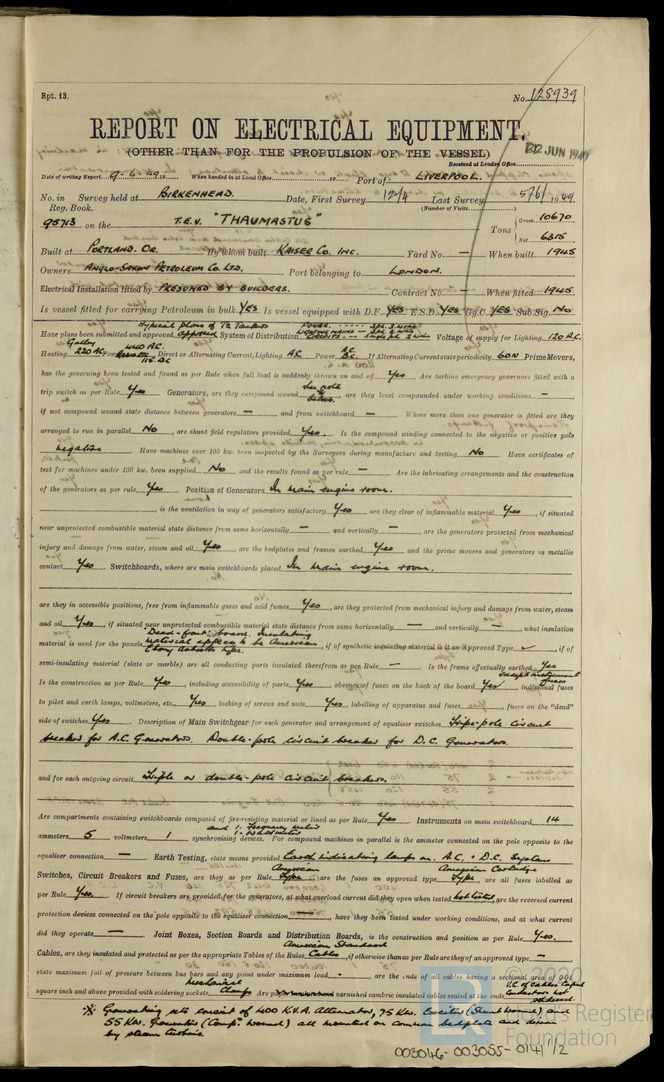 Rpt. 13.
No. 128939
REPORT ON ELECTRICAL EQUIPMENT.
(OTHER THAN FOR THE PROPULSION OF THE VESSEL)
12 JUN 1949
Received at London Office
Date of writing Report 9-6-49 19 When handed in at Local Office 19 Port of LIVERPOOL.
No. in Reg. Book. Survey held at BIRKENHEAD. Date, First Survey 12/4 Last Survey 5/6/ 1949
(Number of Visits )
95713 on the T.E.V. "THAUMASTUS" Tons { Gross 10670 Net 6315
Built at PORTLAND. OR. By whom built KAISER CO. INC. Yard No. — When built 1945
Owners ANGLO-SAXON PETROLEUM CO. LTD. Port belonging to LONDON.
Electrical Installation fitted by PRESUMED BY BUILDERS. Contract No. — When fitted 1945
Is vessel fitted for carrying Petroleum in bulk YES Is vessel equipped with D.F. YES E.S.D. YES Gy.C. YES Sub.Sig. NO
Have plans been submitted and approved Typical plans of T2 Tankers approved System of Distribution Voltage of supply for Lighting 120 A.C.
Heating Galley 220 AC, Power 440 AC. 115 DC Direct or Alternating Current, Lighting A.C Power AC DC. If Alternating Current state periodicity 60 N Prime Movers,
has the governing been tested and found as per Rule when full load is suddenly thrown on and off Yes Are turbine emergency governors fitted with a
trip switch as per Rule Yes Generators, are they compound wound , are they level compounded under working conditions — ,
if not compound wound state distance between generators — and from switchboard — Where more than one generator is fitted are they
arranged to run in parallel No , are shunt field regulators provided Yes. Is the compound winding connected to the negative or positive pole
negative Have machines over 100 kw. been inspected by the Surveyors during manufacture and testing No Have certificates of
test for machines under 100 kw. been supplied No and the results found as per rule — Are the lubricating arrangements and the construction
of the generators as per rule Yes Position of Generators In main engine room.
, is the ventilation in way of generators satisfactory Yes , are they clear of inflammable material Yes , if situated
near unprotected combustible material state distance from same horizontally — and vertically — , are the generators protected from mechanical
injury and damage from water, steam and oil Yes , are the bedplates and frames earthed Yes and the prime movers and generators in metallic
contact Yes Switchboards, where are main switchboards placed In main engine room.
are they in accessible positions, free from inflammable gases and acid fumes Yes , are they protected from mechanical injury and damage from water, steam
and oil Yes , if situated near unprotected combustible material state distance from same horizontally — and vertically — , what insulation
material is used for the panels "Dead-front" board. Insulating material appears to be American Ebony asbestos type. , if of synthetic insulating material is it an Approved Type ✓ , if of
semi-insulating material (slate or marble) are all conducting parts insulated therefrom as per Rule — Is the frame effectually earthed Yes
Is the construction as per Rule Yes , including accessibility of parts Yes , absence of fuses on the back of the board Yes except instrument fuses , individual fuses
to pilot and earth lamps, voltmeters, etc., Yes locking of screws and nuts Yes , labelling of apparatus and fuses Yes , fuses on the "dead"
side of switches Yes. Description of Main Switchgear for each generator and arrangement of equaliser switches Triple-pole circuit
breaker for A.C. Generators. Double-pole circuit breaker for D.C. Generators.
and for each outgoing circuit Triple or double-pole circuit breakers.
Are compartments containing switchboards composed of fire-resisting material or lined as per Rule Yes Instruments on main switchboard 14
ammeters 5 voltmeters 1 synchronising devices. For compound machines in parallel is the ammeter connected on the pole opposite to the
equaliser connection — Earth Testing, state means provided Earth indicating lamps on A.C. + D.C. System
Switches, Circuit Breakers and Fuses, are they as per Rule American Type , are the fuses an approved type American Cartridge Type , are all fuses labelled as
per Rule Yes. If circuit breakers are provided for the generators, at what overload current did they open when tested not tested , are the reversed current
protection devices connected on the pole opposite to the equaliser connection — , have they been tested under working conditions, and at what current
did they operate — Joint Boxes, Section Boards and Distribution Boards, is the construction and position as per Rule Yes.
Cables, are they insulated and protected as per the appropriate Tables of the Rules American Standard Cables , if otherwise than as per Rule are they of an approved type — ,
state maximum fall of pressure between bus bars and any point under maximum load - , are the ends of all cables having a sectional area of 0·04
square inch and above provided with soldering sockets Mechanical Clamps Are varnished cambric insulated cables sealed at the ends
* Generating sets consist of 400 K.V.A. Alternator, 75 KW. Exciter (Shunt wound) and
55 KW. Generator (Comp. wound) all mounted on common bedplate and driven
by steam turbine.
© 2020
LR
Lloyd's Register
Foundation
003046-003055-0141 1/2